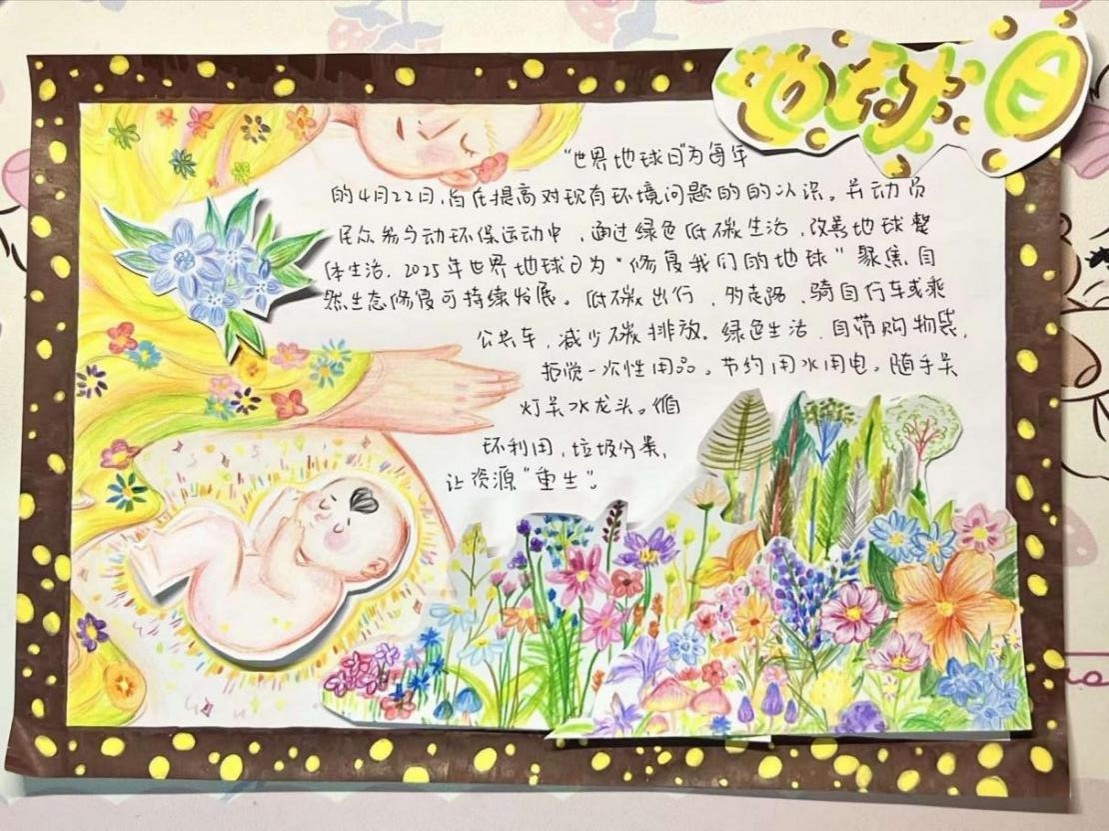 地球日
"世界地球日"为每年
的4月22日,旨在提高对现有环境问题的的认识。并动员
民众参与动环保运动中,通过绿色低碳生活,改善地球整
体生活.2025年世界地球日为"修复我们的地球"聚焦自
然生态修复可持续发展。低碳出行,多走路,骑自行车或乘
公共车,减少碳排放。绿色生活,自带购物袋,
拒觉一次性用品。节约用水用电。随手关
灯关水龙头。循
环利用,垃圾分类,
让资源"重生"。